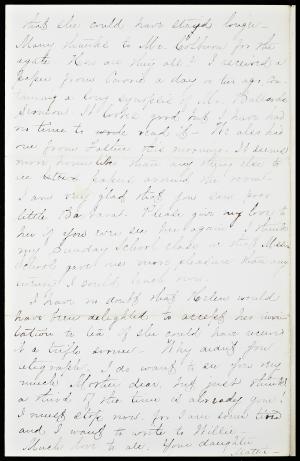 that she could have stayed longer -
Many thanks to Mr. Colburn for the
agate. How are they all? I received a
paper from a day or two ago con-
taining a long synopsis of Mr. Ballard's
sermon. It looks good but I have had
no time to read it - We also had
one from this morning. It seems
more homelike than any thing else to
see papers around the room.
I am very glad that you saw poor
little Please give my love to
her if you ever see her again. I think
my Sunday School class at that
School gave me more pleasure than any
I could
I have no doubt that Helen would
have been delighted to accept her invi-
tation to tea if she could have received
it a trifle sooner. Why didn't you
telegraph? I do want to see you very
much Mother dear, but just think
a third of the time is already gone!
I must stop now, for I am some tired
and I want to write to Willie.
Much love to all. Your daughter
Mattie -